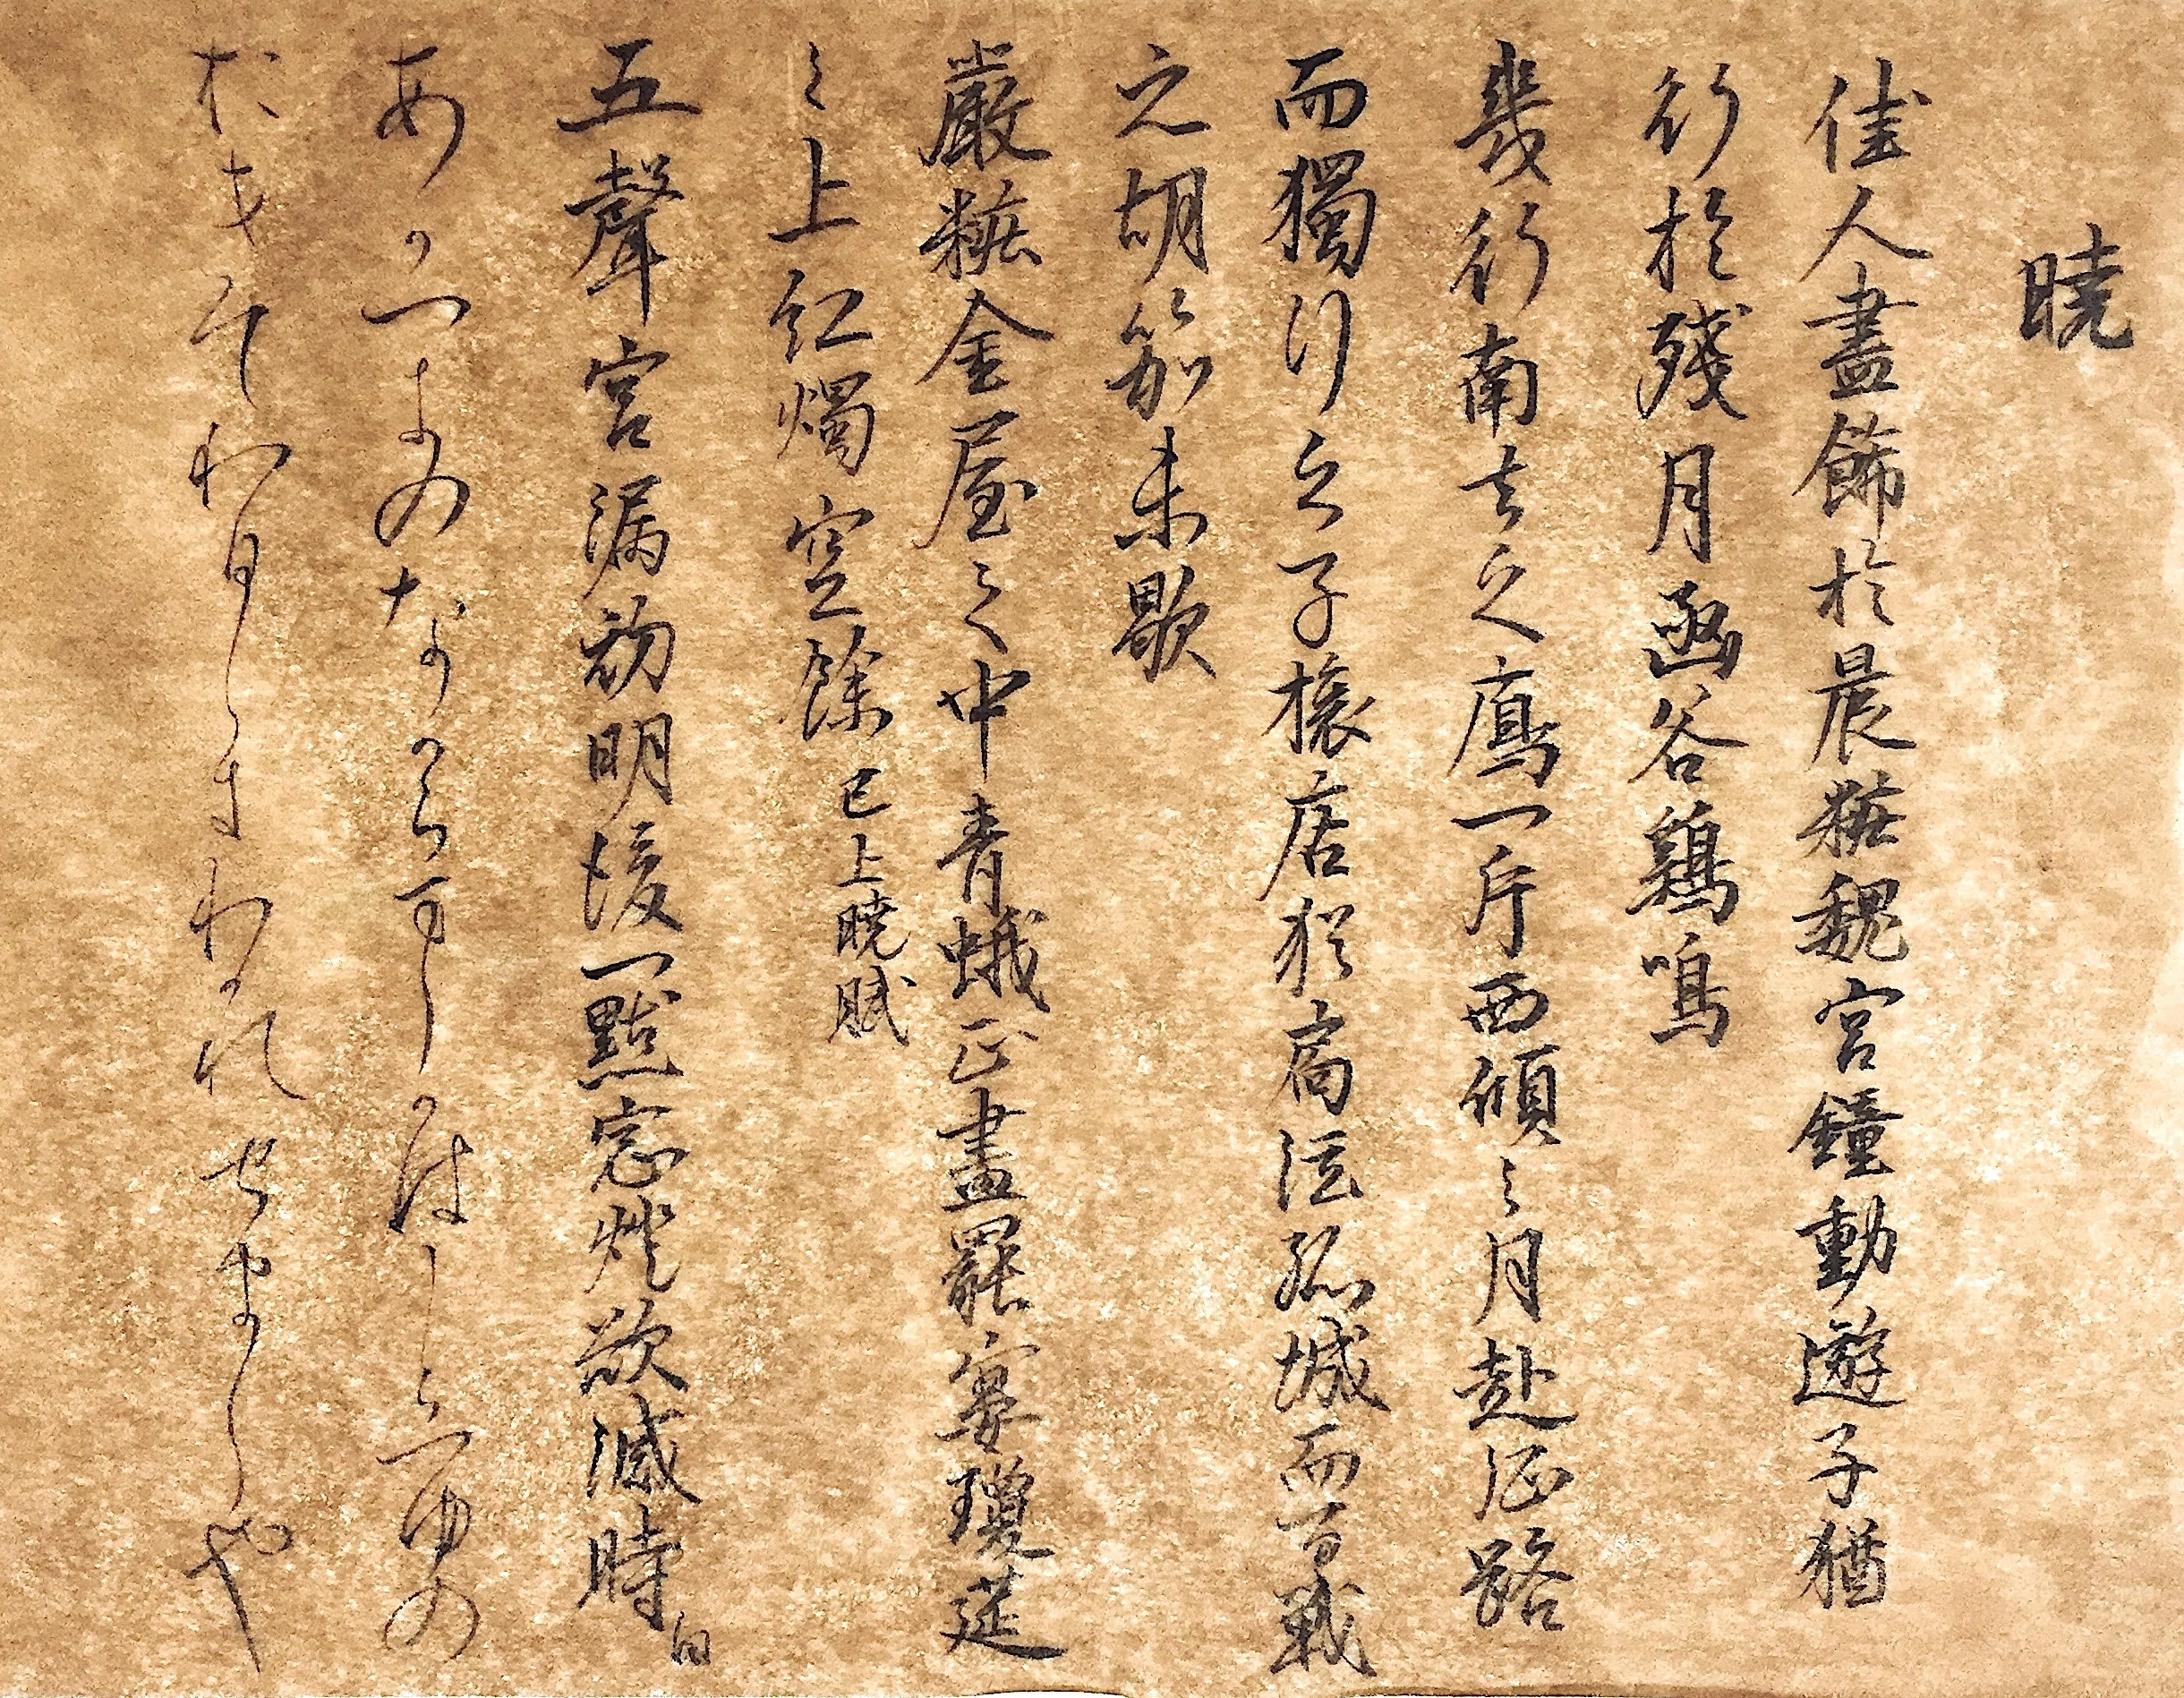 暁
佳人盡飾於晨粧魏宮鐘動遊子猶
行於殘月函谷鷄鳴
幾行南去之鴈一片西傾之月赴征路
而獨行之子旅店猶扃泣孤城而百戰
之胡笳未歇
嚴粧金屋之中青蛾正畫罷宴瓊莚
之上紅燭空餘 已上暁賦
五聲宮漏初明後一點窓燈欲滅時 白
あかつきのなからましかはしらつゆの
おきてわひしきわかれせましや